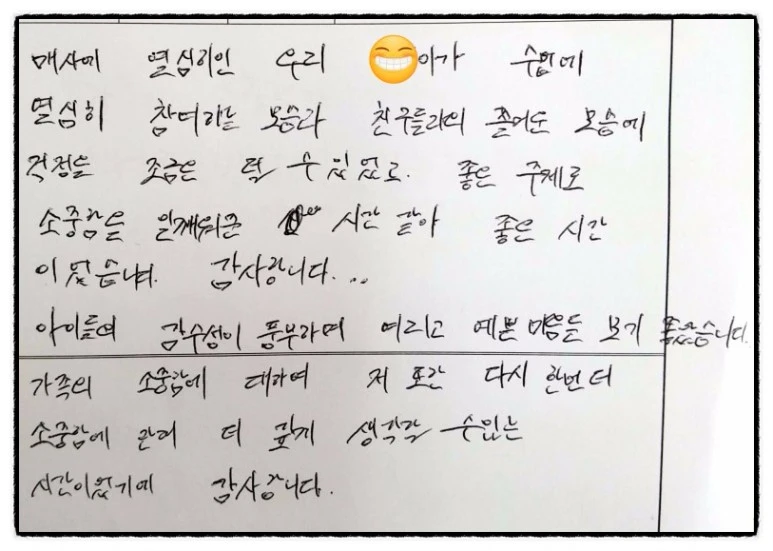 매사에 열심히인 우리 아가 수업에
열심히 참여하는 모습과 친구들과의 즐거운 모습에
걱정을 조금은 덜 수 있었고. 좋은 주제로
소중함을 일깨워준 시간 같아 좋은 시간
이었습니다. 감사합니다...
아이들의 감수성이 풍부하며 여리고 예쁜 마음을 보기 좋았습니다.
가족의 소중함에 대하여 저 또한 다시 한번 더
소중함에 관해 더 깊게 생각할 수있는
시간이었기에 감사합니다.